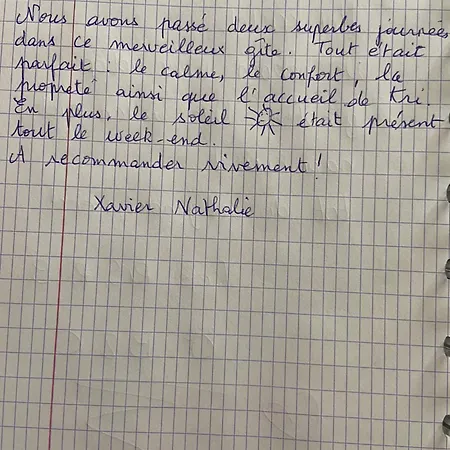 Nous avons passé deux superbes journées
dans ce merveilleux gîte. Tout était
parfait : le calme, le confort, la
propreté ainsi que l'accueil de Kri.
En plus, le soleil était présent
tout le week-end.
A recommander vivement !
Xavier Nathalie